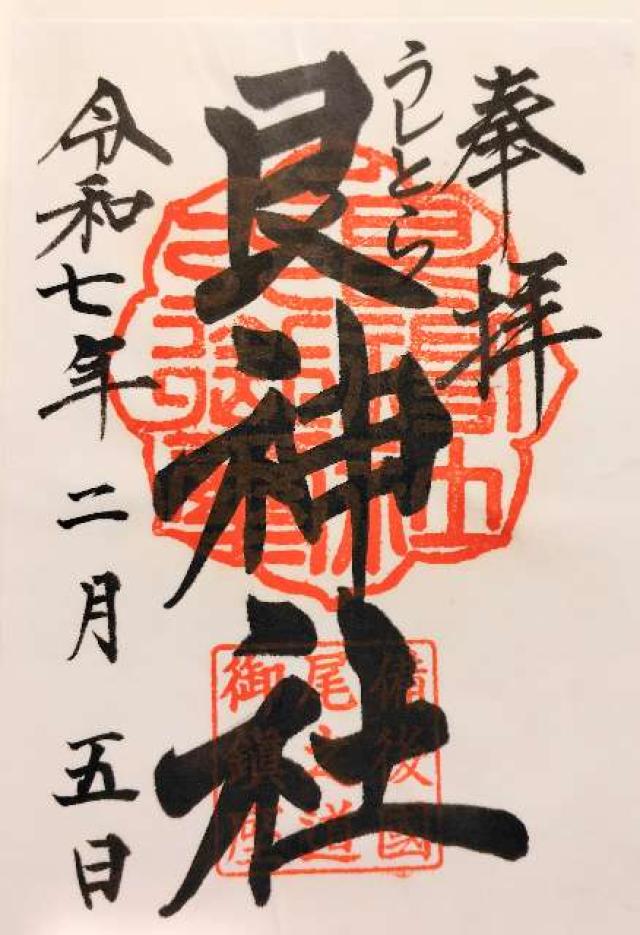 奉拝
うしとら
艮神社
令和七年二月五日
備後國
尾之道
御鎮座